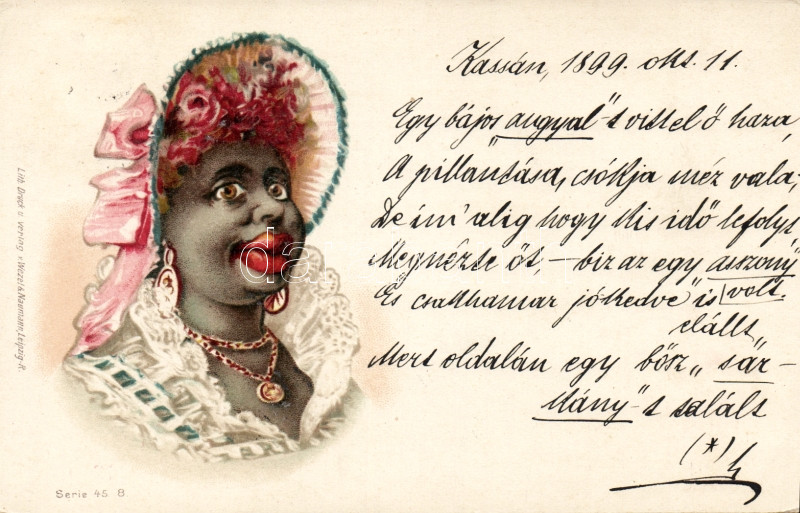 Kassán, 1899. okt. 11.
Egy bájos „angyal"-t vitt el ő haza,
A pillantása, csókja méz vala,
De ím' alig hogy kis idő lefolyt
Megnézte őt, – biz az egy asszony
volt.
És csakhamar jókedve is
elállt,
Mert oldalán egy bősz „sár-
kány"-t talált
(*)
Lith. Druck u. Verlag v. Wezel & Naumann, Leipzig-R.
Serie 45 B.